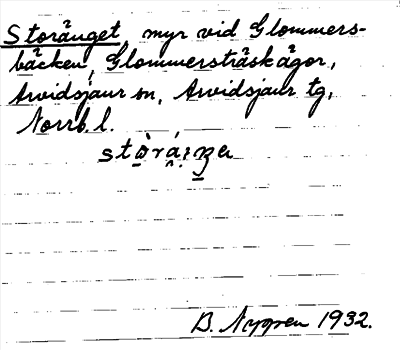 Storänget, myr vid Glommers-
bäcken, Glommersträskågor,
Arvidsjaur sn, Arvidsjaur tg,
Norrb. l.
B. Nyppen 1932.